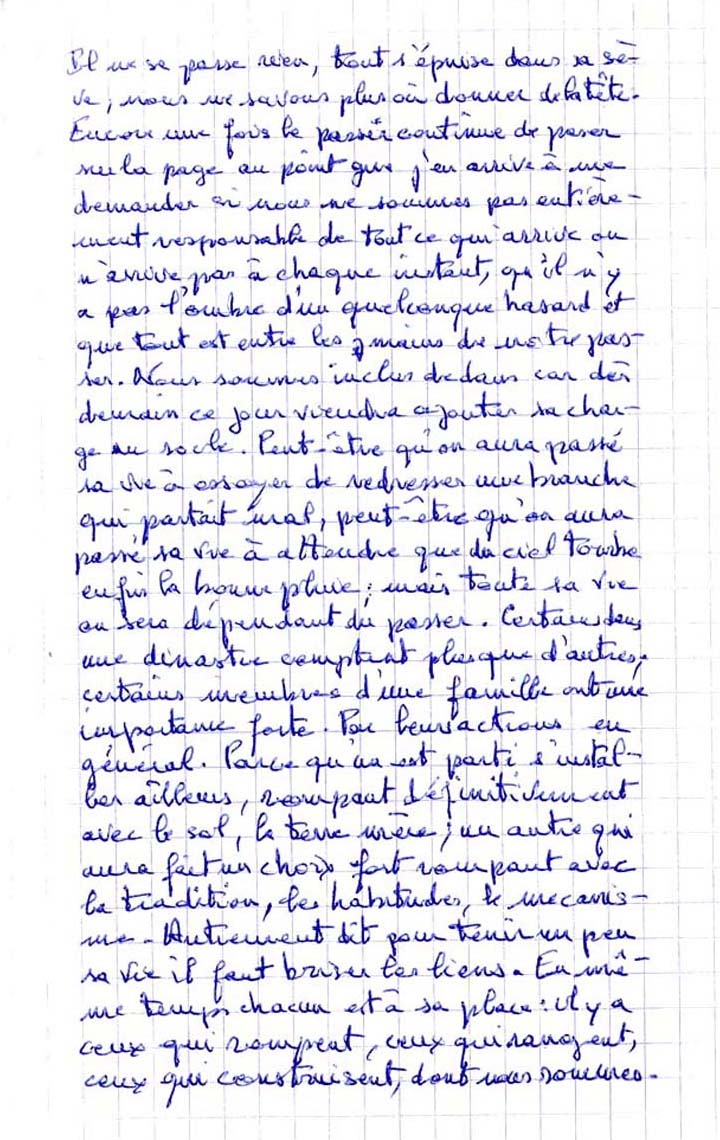 Il ne se passe rien, tout s'épuise dans sa sè-
ve, nous ne savons plus où donner de la tête.
Encore une fois le passér continue de peser
sur la page au point que j'en arrive à me
demander si nous ne sommes pas entière-
ment responsable de tout ce qui arrive ou
n'arrive pas à chaque instant, qu'il n'y
a pas l'ombre d'un quelconque hasard et
que tout est entre les mains de notre pas-
ser. Nous sommes inclus dedans car dès
demain ce jour viendra ajouter sa char-
ge au socle. Peut-être qu'on aura passé
sa vie à essayer de redresser une branche
qui partait mal, peut-être qu'on aura
passé sa vie à attendre que du ciel tombe
enfin la bonne pluie ; mais toute sa vie
on sera dépendant du passer. Certains dans
une dinastie comptent plus que d'autres,
certains membres d'une famille ont une
importance forte. Par leurs actions en
général. Parce qu'un est parti s'instal-
ler ailleurs, rompant définitivement
avec le sol, la terre mère ; un autre qui
aura fait un choix fort rompant avec
la tradition, les habitudes, le mecanis-
me. Autrement dit pour tenir un peu
sa vie il faut briser les liens. En mê-
me temps chacun est à sa place : il y a
ceux qui rompent, ceux qui rangent,
ceux qui construisent, dont nous sommes.